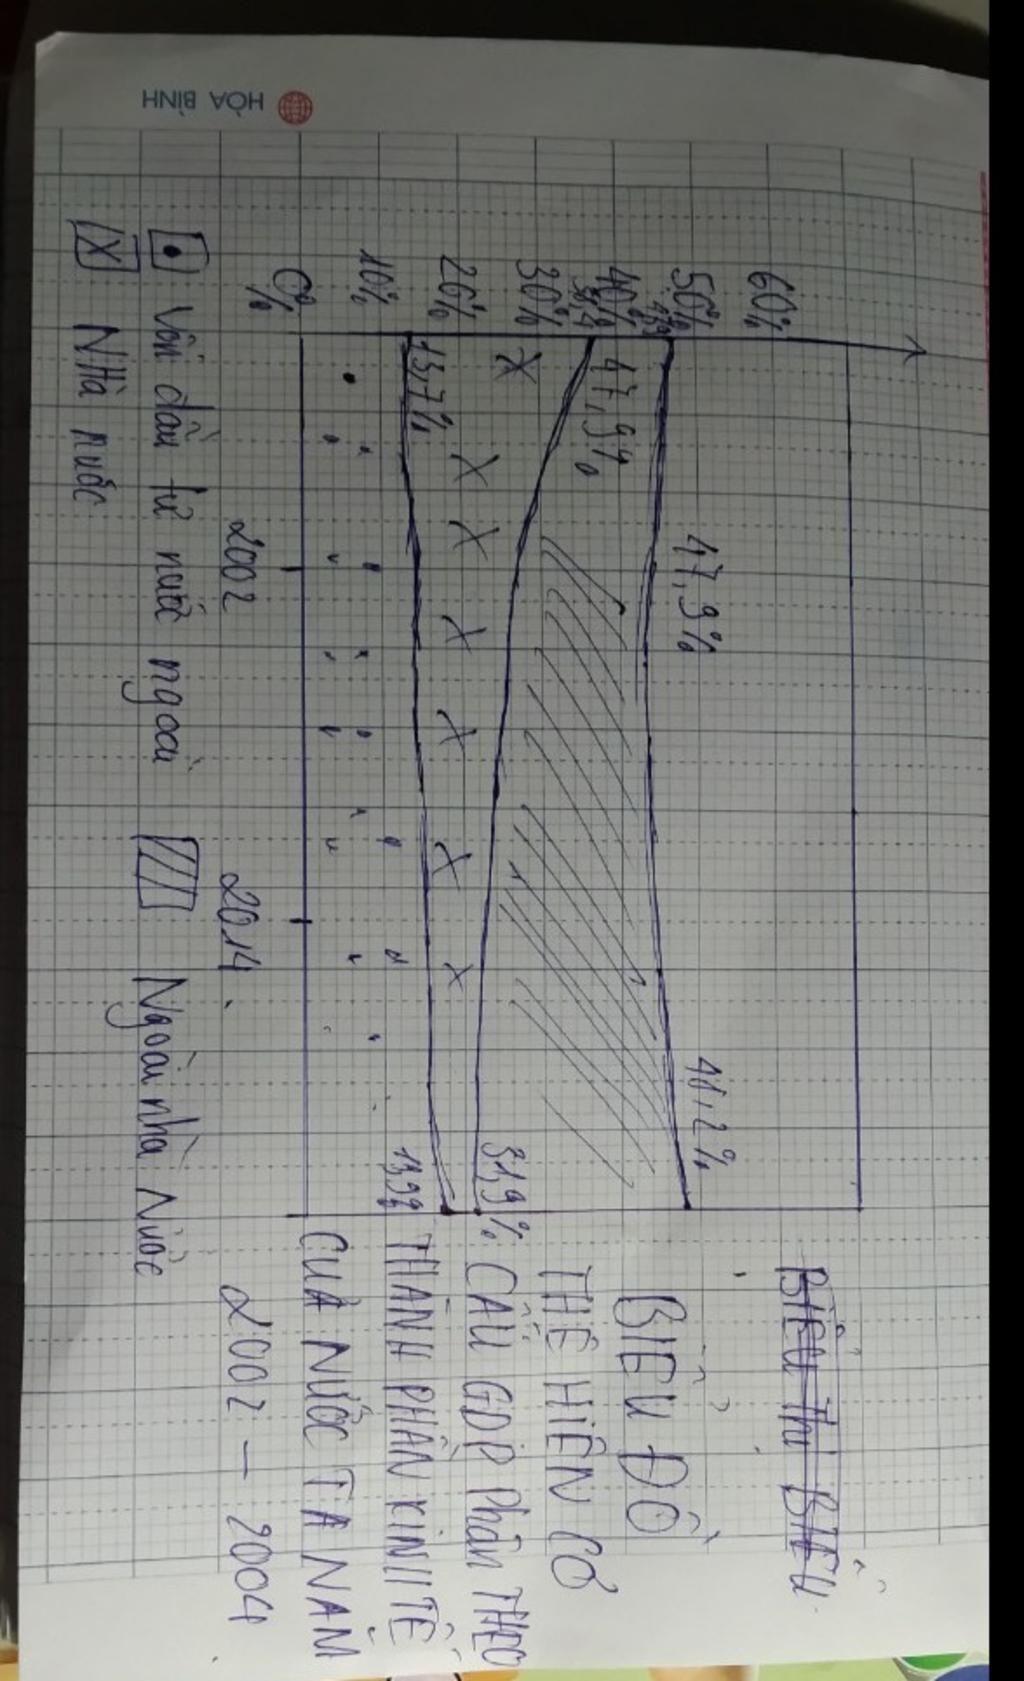 HÒA BÌNH
60%
50%
47,9
40%
37,4
30%
20%
10%
0%
%
47,9%
41,2%
47,9%
13,7%
31,9%
2002
2014
Vốn đầu tư nước ngoài
Ngoài nhà Nước
X Nhà nước
BIỂU ĐỒ
THỂ HIỆN CƠ
CẤU GDP Phân THEO
THÀNH PHẦN KINH TẾ
CỦA NƯỚC TA NĂM
2002 - 2004